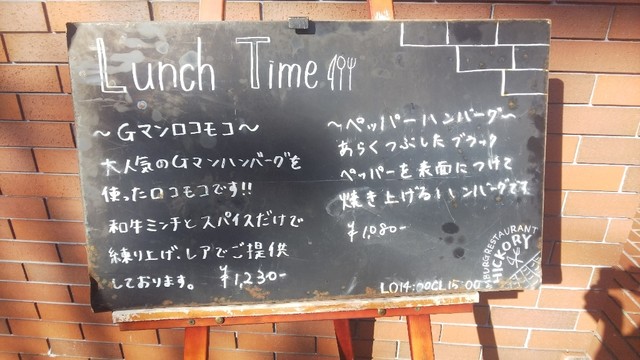 Lunch Time
～Gマンロコモコ～
大人気のGマンハンバーグを
使ったロコモコです!!
和牛ミンチとスパイスだけで
練り上げ、レアでご提供
しております。 ¥1,230-
～ペッパーハンバーグ～
あらくつぶしたブラック
ペッパーを表面につけて
焼き上げるハンバーグです
¥1,080-
LO14:00CL15:00
BURG RESTAURANT
HICKORY